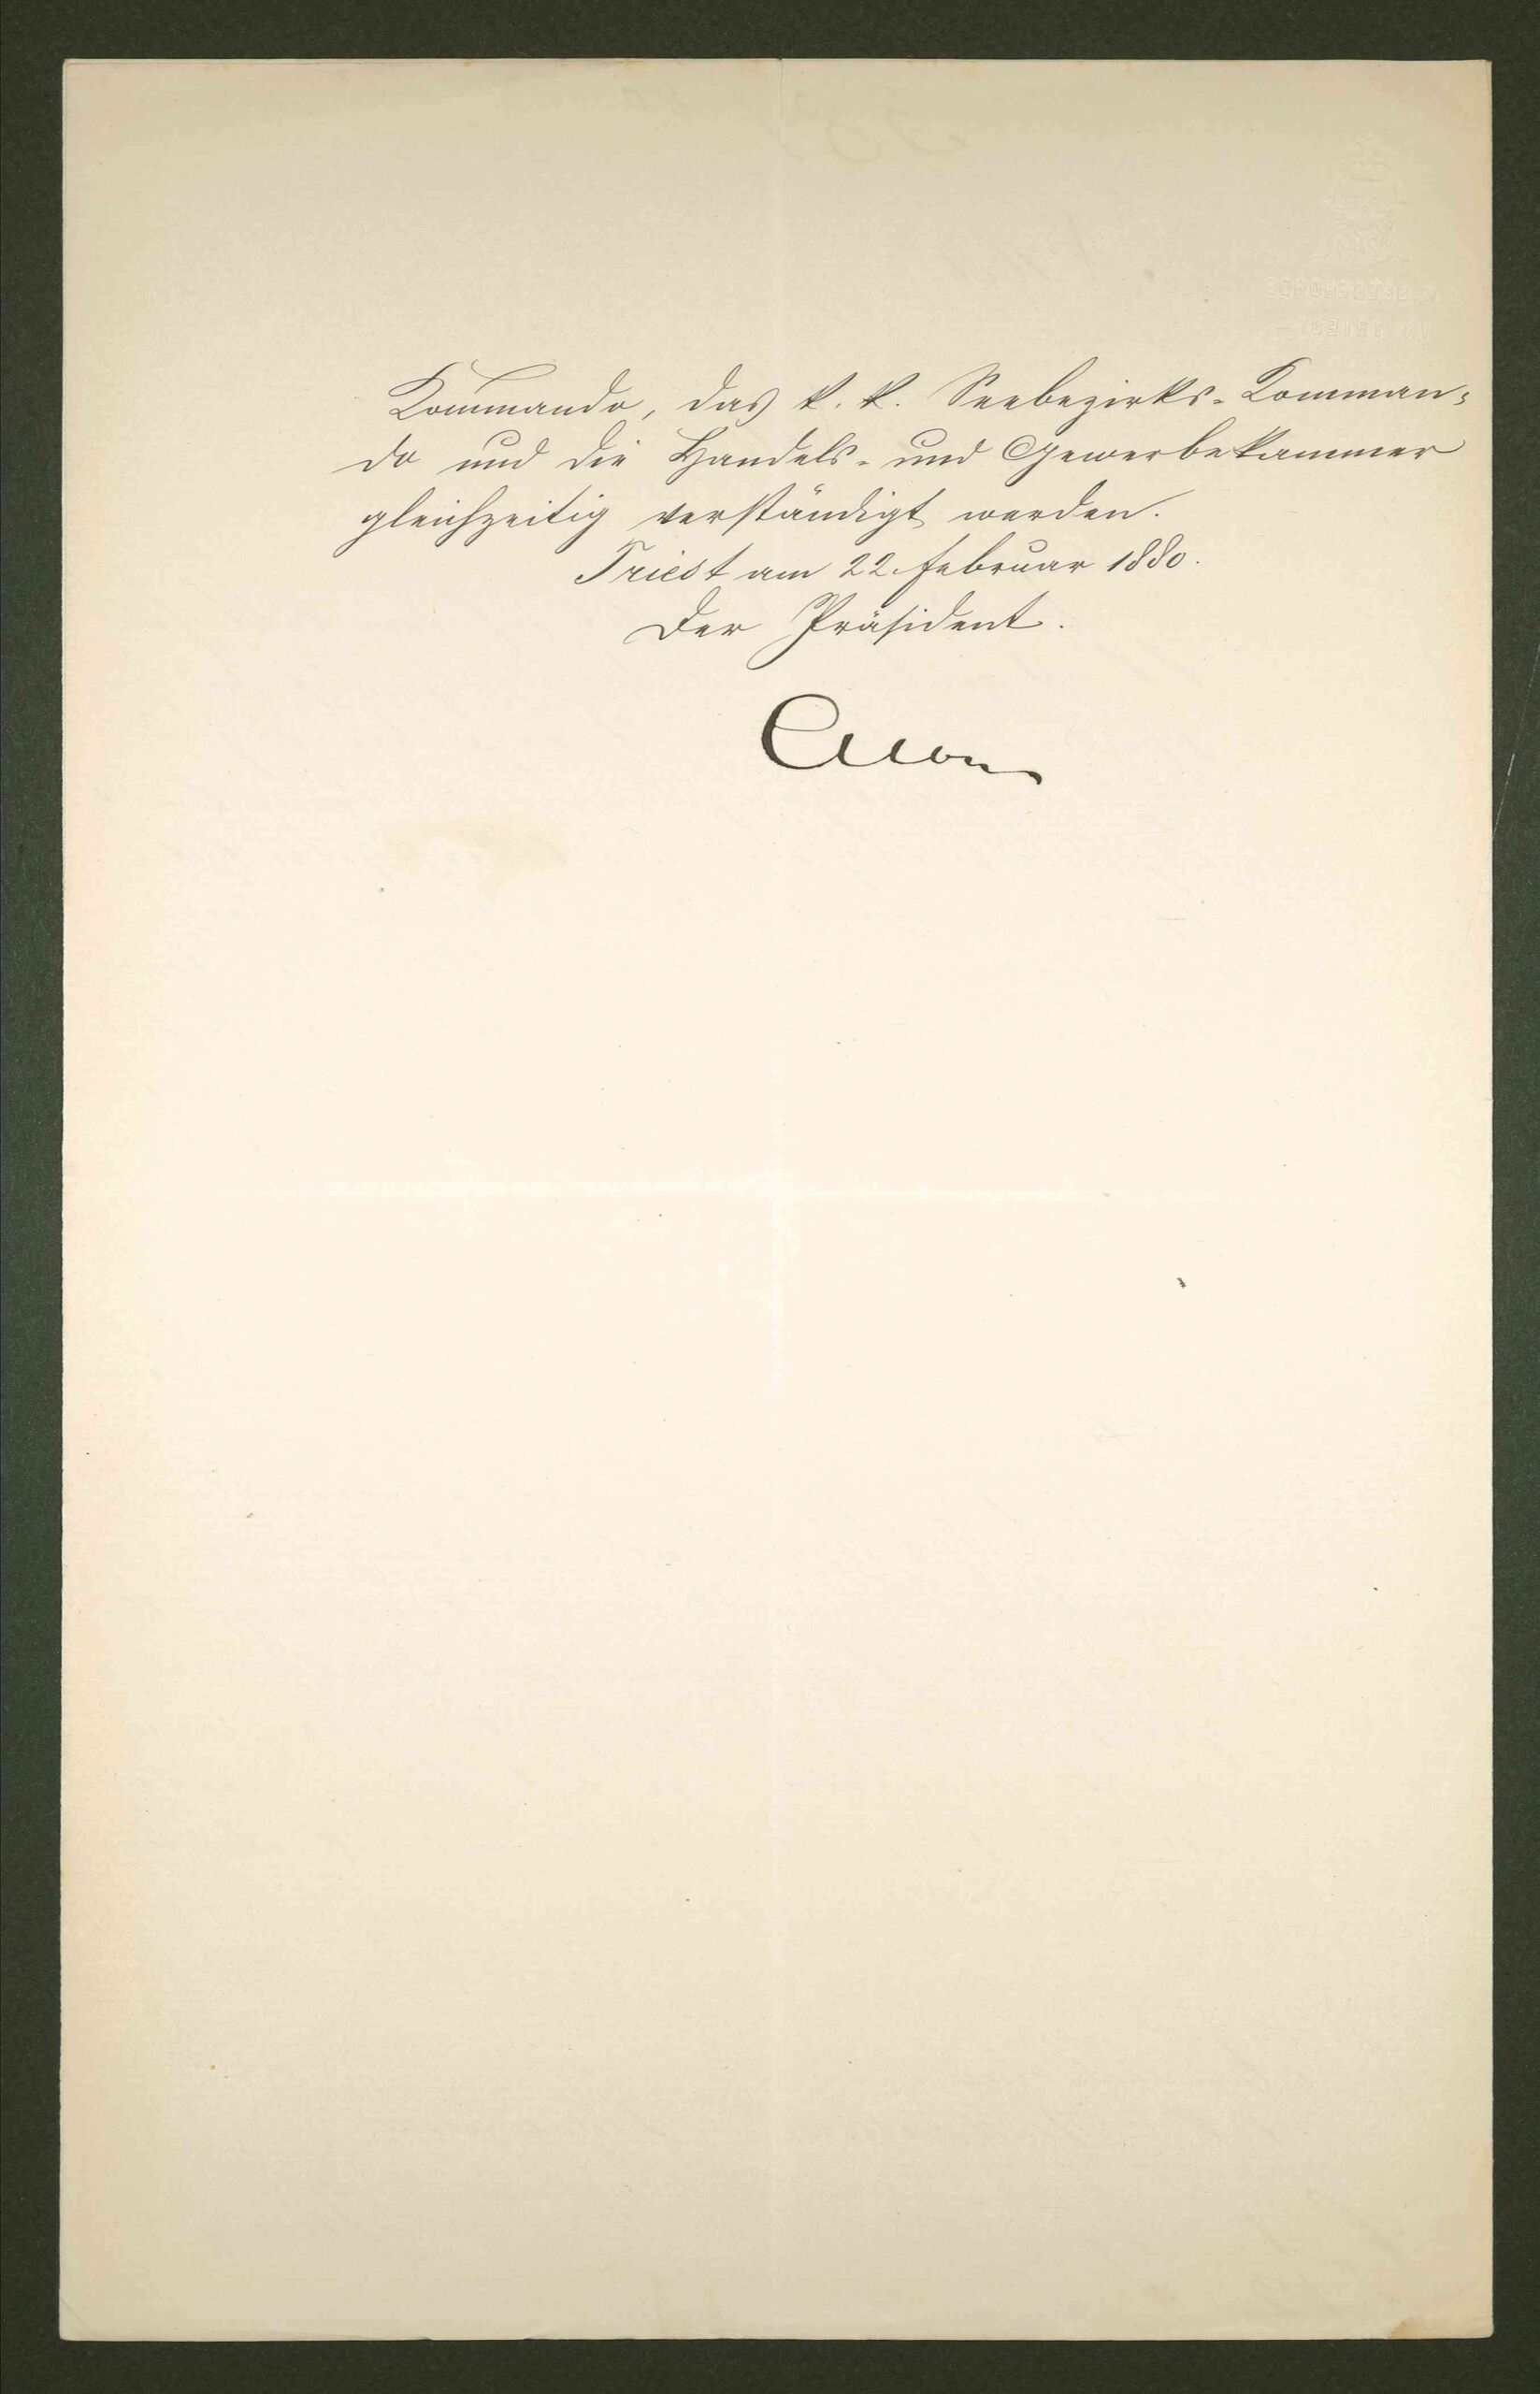 Kommando, das k. k. Seebezirks-Komman-
do und die Handels- und Gewerbekammer
gleichzeitig verständigt werden.
Triest am 22. Februar 1880.
Der Präsident.